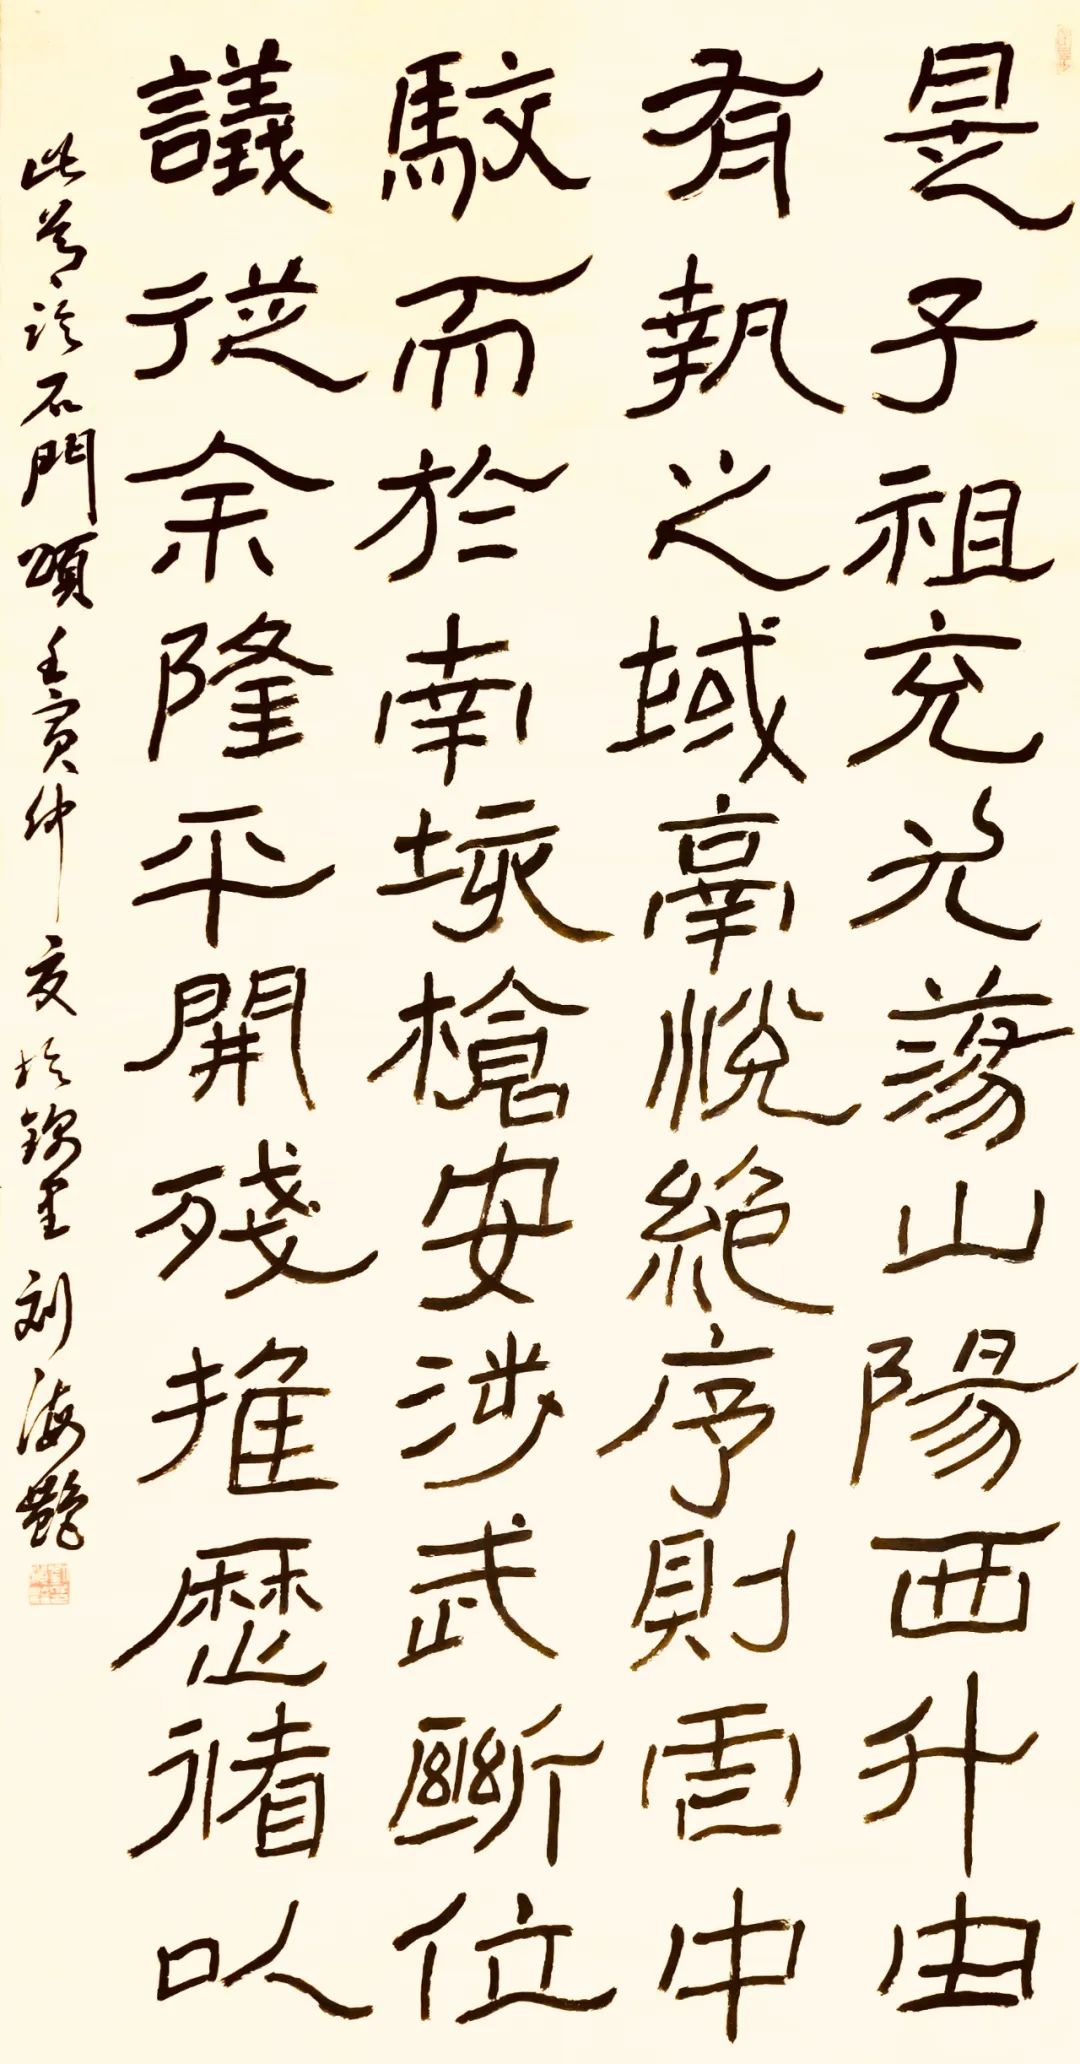 是子祖充允蕩山陽西升由
有執之域辜悅絕序則雲中
駮而於南域槍安涉武斷位
議從余隆平開殘推歷褚以
此节临石門頌壬寅仲夏於錦里刘海艷